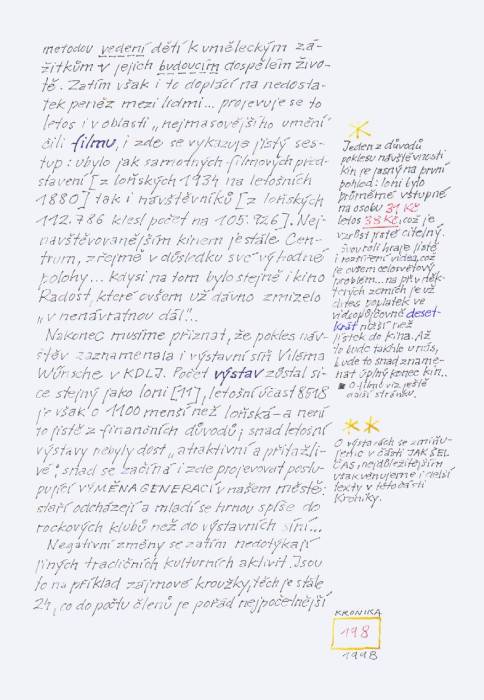 metodou vedení dětí k uměleckým zá-
žitkům v jejich budoucím dospělém živo-
tě. Zatím však i to doplácí na nedosta-
tek peněz mezi lidmi... projevuje se to
letos i v oblasti „nejmasovějšího umění"
čili filmu, i zde se vykazuje jistý ses-
tup: ubylo jak samotných filmových před-
stavení [z loňských 1934 na letošních
1880] tak i návštěvníků [z loňských
112.786 klesl počet na 105.926]. Nej-
navštěvovanějším kinem je stále Cen-
trum, zřejmě v důsledku své výhodné
polohy... Kdysi na tom bylo stejně i kino
Radost, které ovšem už dávno zmizelo
„v nenávratnou dál"...
Nakonec musíme přiznat, že pokles náv-
štěv zaznamenala i výstavní síň Viléma
Wünsche v KDLJ. Počet výstav zůstal si-
ce stejný jako loni [11], letošní účast 8518
je však o 1100 menší než loňská - a není
to jistě z finančních důvodů; snad letošní
výstavy nebyly dost „atraktivní a přitažli-
vé"; snad se začíná i zde projevovat postu-
pující VÝMĚNA GENERACÍ v našem městě:
staří odcházejí a mladí se hrnou spíše do
rockových klubů než do výstavních síní...
Negativní změny se zatím nedotýkají
jiných tradičních kulturních aktivit. Jsou
to na příklad zájmové kroužky, těch je stále
24, co do počtu členů je pořád nejpočetnější
Jeden z důvodů
poklesu návštěvnosti
kin je jasný na první
pohled: loni bylo
průměrné vstupné
na osobu 31 Kč
letos 38 Kč, což je
vzrůst jistě citelný.
Svou roli hraje jistě
i rozšíření videa, což
je ovšem celosvětový
problém... na př. v něk-
terých zemích je už
dnes poplatek ve
videopůjčovně deset-
krát nižší než
lístek do kina. Až
to bude takhle u nás,
bude to snad zname-
nat úplný konec kin..
O filmu viz ještě
další stránku.
O výstavách se zmiňu-
jeme v části JAK ŠEL
ČAS, nejdůležitějším
však věnujeme i delší
texty v této části
Kroniky.
KRONIKA
198
1998